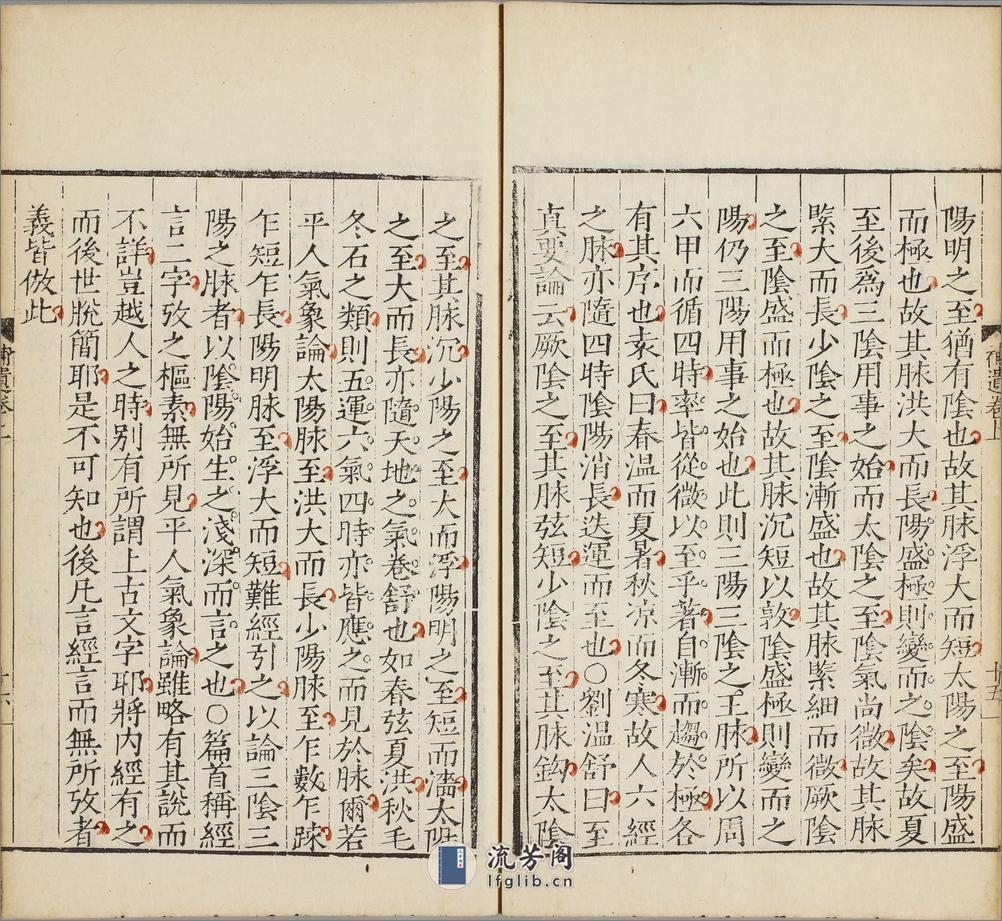 陽明之至猶有陰也故其脉浮大而短太陽之至陽盛
而極也故其脉洪大而長陽盛極則變而之陰矣故夏
至後爲三陰用事之始而太陰之至陰氣尚微故其脉
緊大而長少陰之至陰漸盛也故其脉緊細而微厥陰
之至陰盛而極也故其脉沉短以敦陰盛極則變而之
陽仍三陽用事之始也此則三陽三陰之王脉所以周
六甲而循四時率皆從微以至乎著自漸而趨於極各
有其序也袁氏曰春温而夏暑秋凉而冬寒故人六經
之脉亦隨四時陰陽消長迭運而至也○劉温舒曰至
真要論云厥陰之至其脉弦短少陰之至其脉鈎太陰
之至其脉沉少陽之至大而浮陽明之至短而濇太陽
之至大而長亦隨天地之氣卷舒也如春弦夏洪秋毛
冬石之類則五運六氣四時亦皆應之而見於脉爾若
平人氣象論太陽脉至洪大而長少陽脉至乍數乍踈
乍短乍長陽明脉至浮大而短難經引之以論三陰三
陽之脉者以陰陽始生之淺深而言之也○篇首稱經
言二字攷之樞素無所見平人氣象論雖略有其說而
不詳豈越人之時別有所謂上古文字耶將内經有之
而後世脫簡耶是不可知也後凡言經言而無所攷者
義皆倣此
流芳阁
lfglib.cn